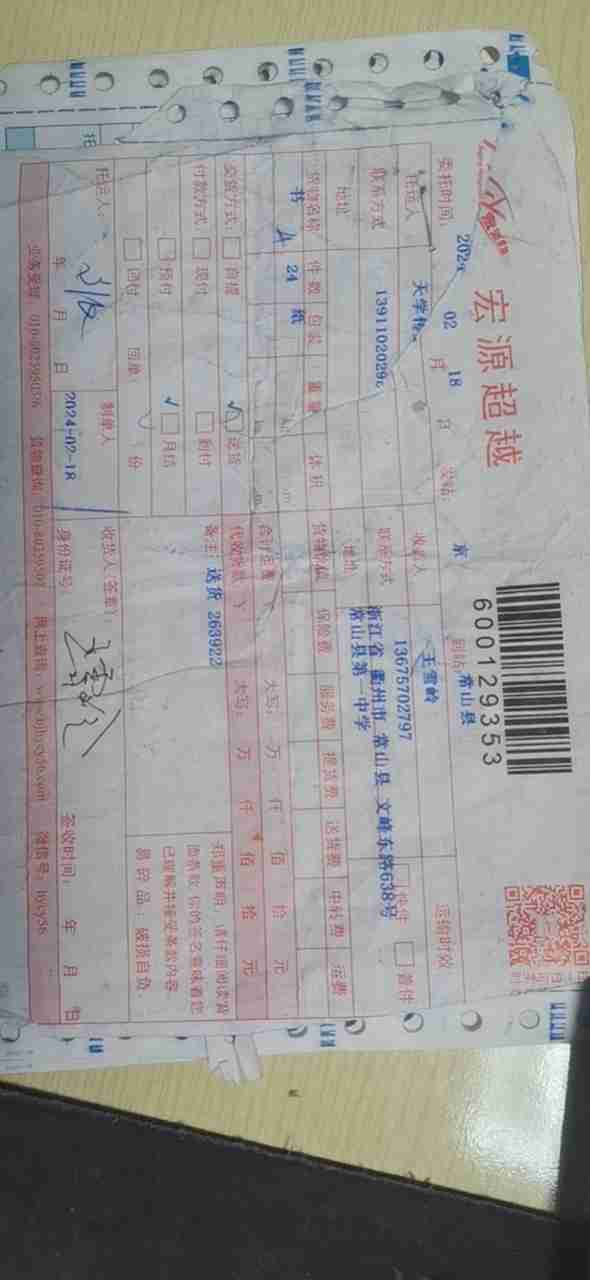 宏源超越
600129353
委托时间: 2024 02 月 18 日 发站: 京 到站: 常山县 运输时效
托运人 天学传 收货人 王雪岭
普件
联系方式 联系方式 13675702797
地址 地址 浙江省 衢州市 常山县 文峰东路638号
常山县第一中学
货物名称 件数 包装 重量 体积 保险费 服务费 提货费 送货费 中转费 运费
书 24 纸
大写: 万 仟 佰 拾 元
交货方式: 自提 送货 代收货款 大写: 万 仟 佰 拾 元
付款方式: 现付 到付 备注: 送货 263922
预付 月结
回付 回单: 份
郑重声明,请仔细阅读背
面条款,你的签名意味着您
已理解并接受条款内容。
易碎品,破损自负。
托运人: 制单人 收货人(签章):
年 月 日 2024-02-18 身份证号: 签收时间: 年 月 日
业务受理: 货物查询: 网上查询: 微信号: hycy56